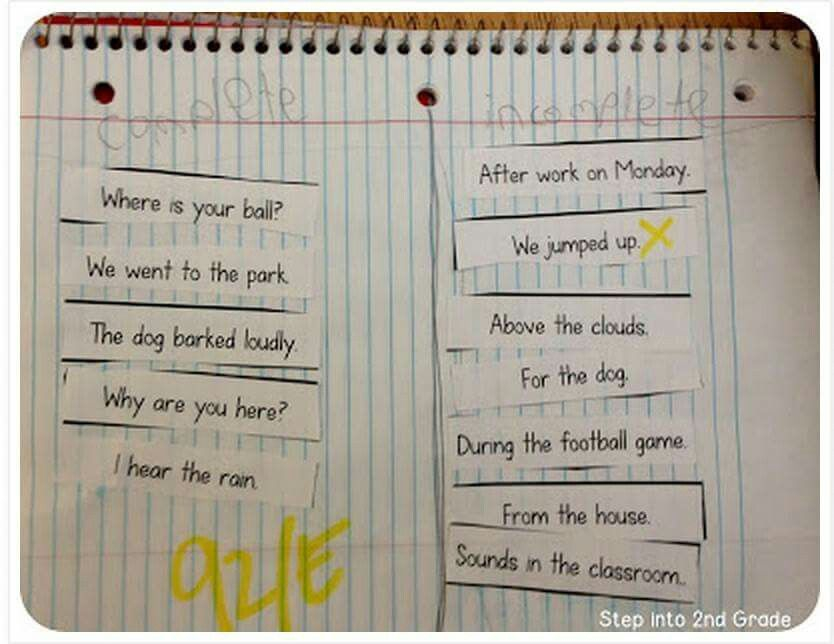 complete
Where is your ball?
We went to the park.
The dog barked loudly.
Why are you here?
I hear the rain.
92/E
incomplete
After work on Monday.
We jumped up. X
Above the clouds.
For the dog.
During the football game.
From the house.
Sounds in the classroom.
Step into 2nd Grade